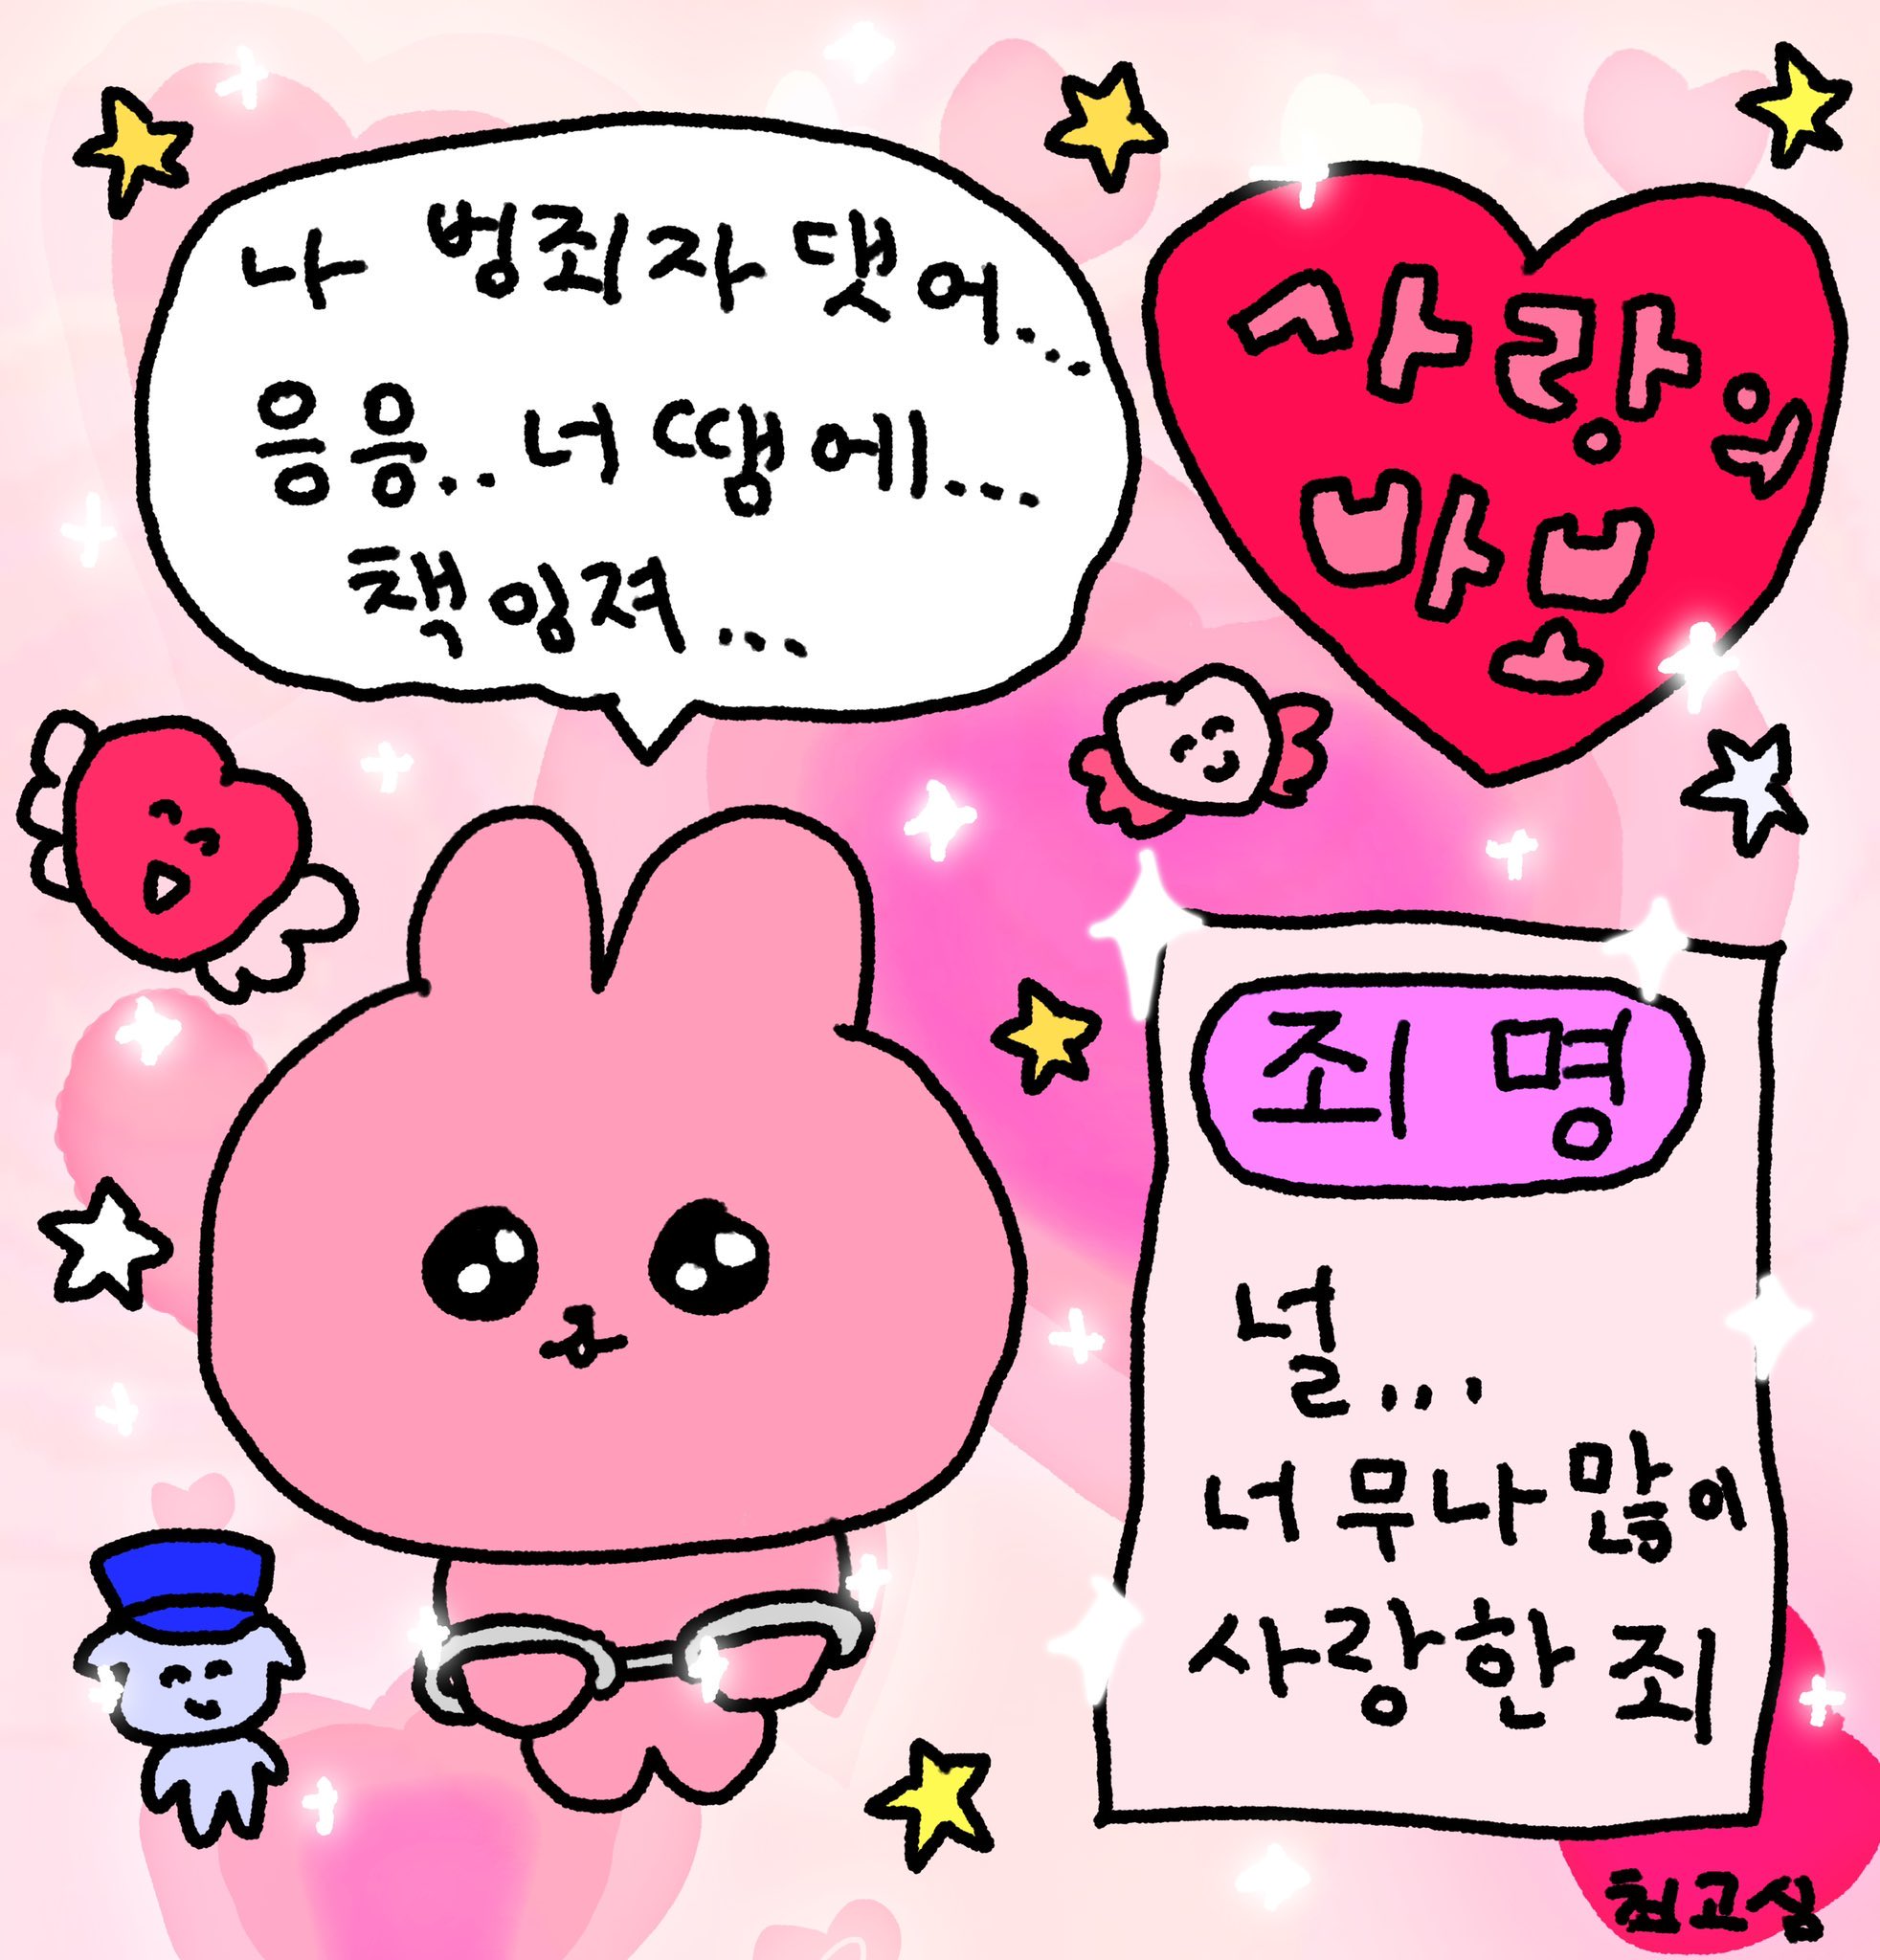 나 범죄자 댓어...
응응.. 너 땡에...
책잉져...
사랑의
바보
죄명
널...
너무나 많이
사랑한 죄
최고심